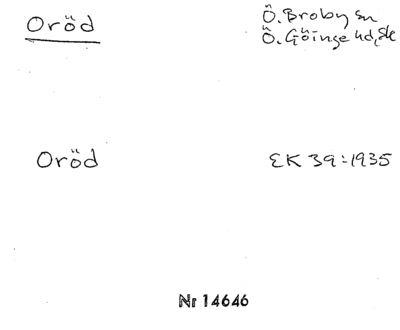 Oröd
Ö. Broby sn
Ö. Göinge hd, Sk
Oröd
EK 39:1935
Nr 14646